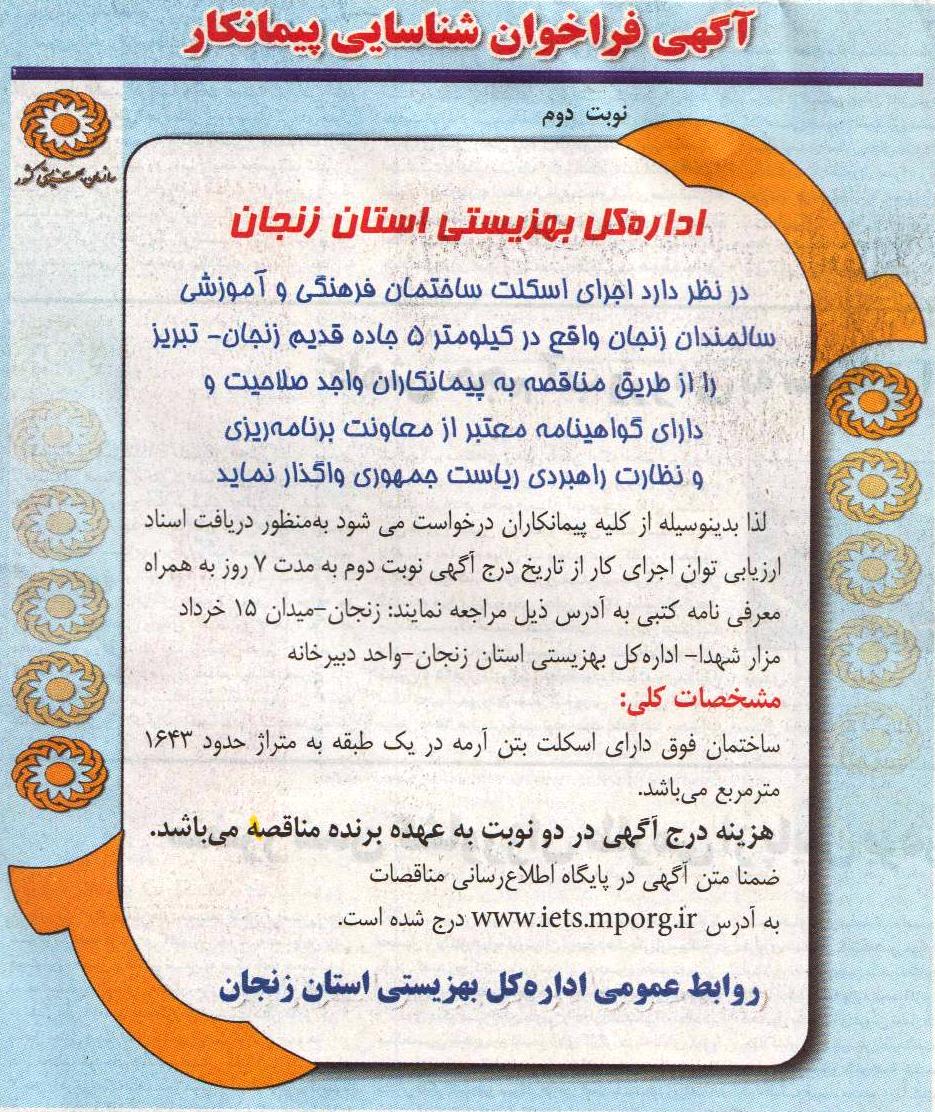 آگهی فراخوان شناسایی پیمانکار
نوبت دوم
سازمان بهزیستی کشور
اداره‌کل بهزیستی استان زنجان
در نظر دارد اجرای اسکلت ساختمان فرهنگی و آموزشی
سالمندان زنجان واقع در کیلومتر ۵ جاده قدیم زنجان- تبریز
را از طریق مناقصه به پیمانکاران واجد صلاحیت و
دارای گواهینامه معتبر از معاونت برنامه‌ریزی
و نظارت راهبردی ریاست جمهوری واگذار نماید
لذا بدینوسیله از کلیه پیمانکاران درخواست می شود به‌منظور دریافت اسناد
ارزیابی توان اجرای کار از تاریخ درج آگهی نوبت دوم به مدت ۷ روز به همراه
معرفی نامه کتبی به آدرس ذیل مراجعه نمایند: زنجان-میدان ۱۵ خرداد
مزار شهدا- اداره‌کل بهزیستی استان زنجان-واحد دبیرخانه
مشخصات کلی:
ساختمان فوق دارای اسکلت بتن آرمه در یک طبقه به متراژ حدود ۱۶۴۳
مترمربع می‌باشد.
هزینه درج آگهی در دو نوبت به عهده برنده مناقصه می‌باشد.
ضمنا متن آگهی در پایگاه اطلاع‌رسانی مناقصات
به آدرس www.iets.mporg.ir درج شده است.
روابط عمومی اداره‌کل بهزیستی استان زنجان